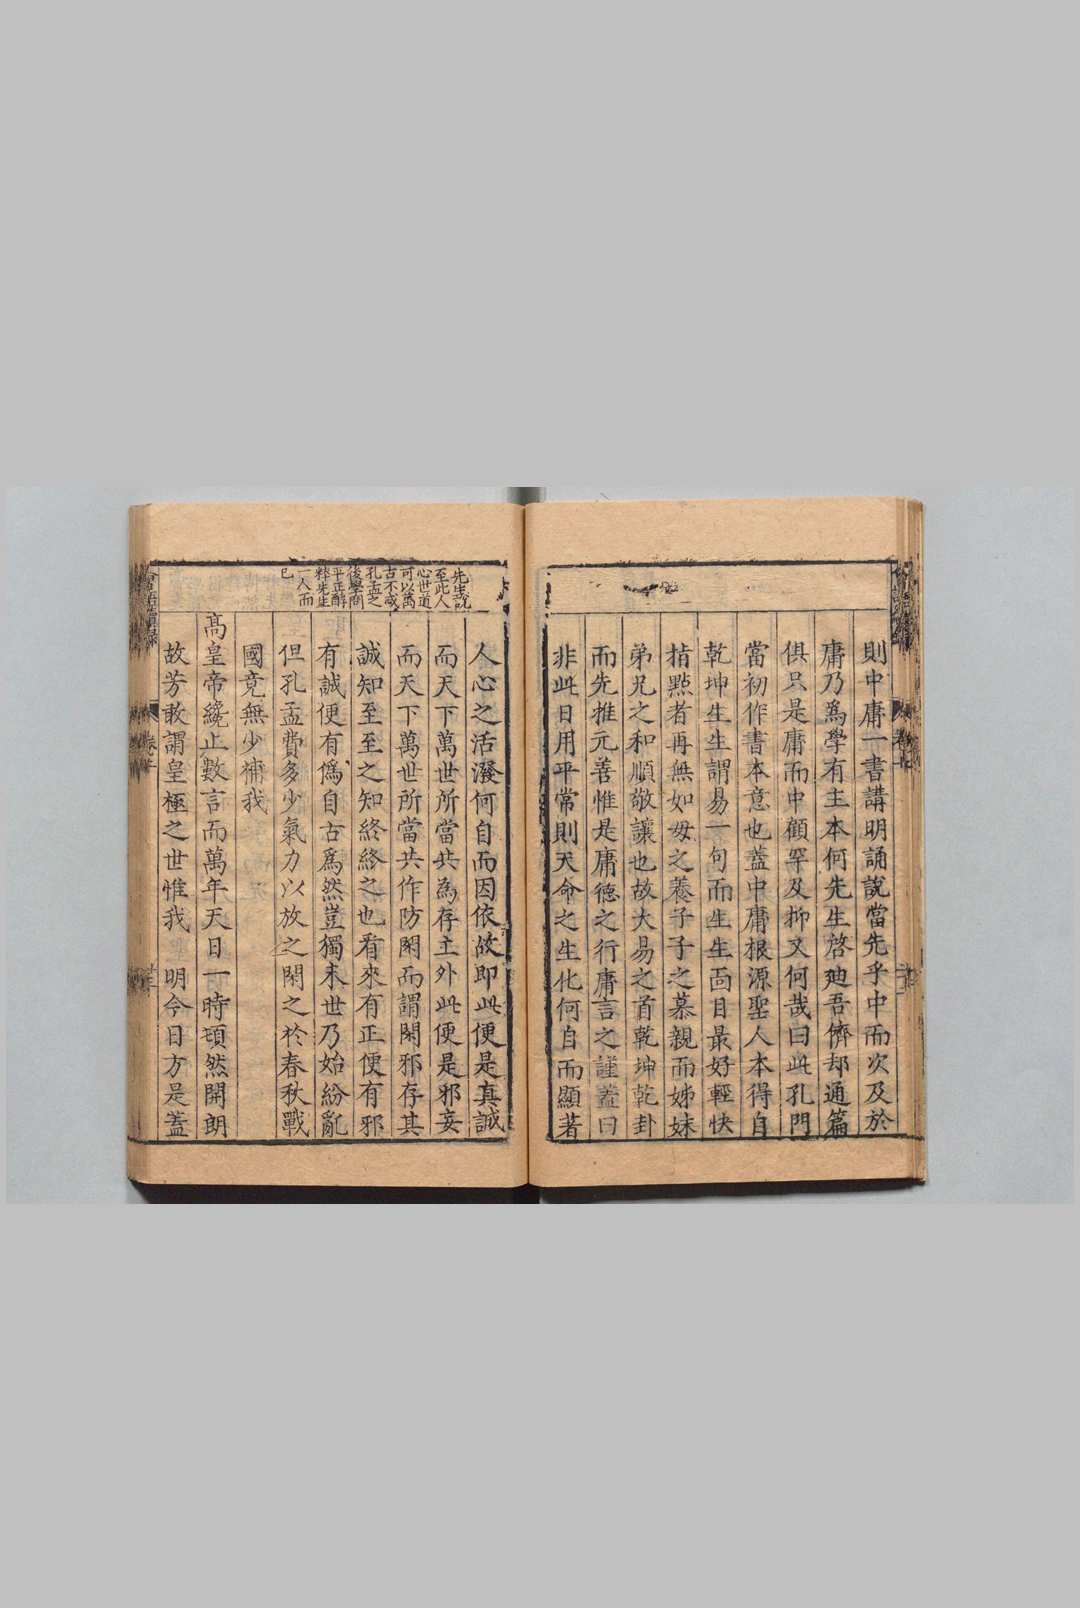 則中庸一書講明誦說當先乎中而次及於
庸乃爲學有主本何先生啓廸吾儕却通篇
俱只是庸而中顧罕及抑又何哉曰此孔門
當初作書本意也蓋中庸根源聖人本得自
乾坤生生謂易一句而生生面目最好輕快
指點者再無如母之養子子之慕親而姊妹
弟兄之和順敬讓也故大易之首乾坤乾卦
而先推元善惟是庸德之行庸言之謹蓋曰
非此日用平常則天命之生化何自而顯著
先生說
至此人
心世道
可以萬
古不或
孔孟之
後學問
平正醇
粹先生
一人而
已
人心之活潑何自而因依故即此便是真誠
而天下萬世所當共為存主外此便是邪妄
而天下萬世所當共作防閑而謂閑邪存其
誠知至至之知終終之也看來有正便有邪
有誠便有僞自古爲然豈獨末世乃始紛亂
但孔孟費多少氣力以放之閑之於春秋戰
國竟無少補我
高皇帝纔止數言而萬年天日一時頓然開朗
故芳敢謂皇極之世惟我 明今日方是蓋